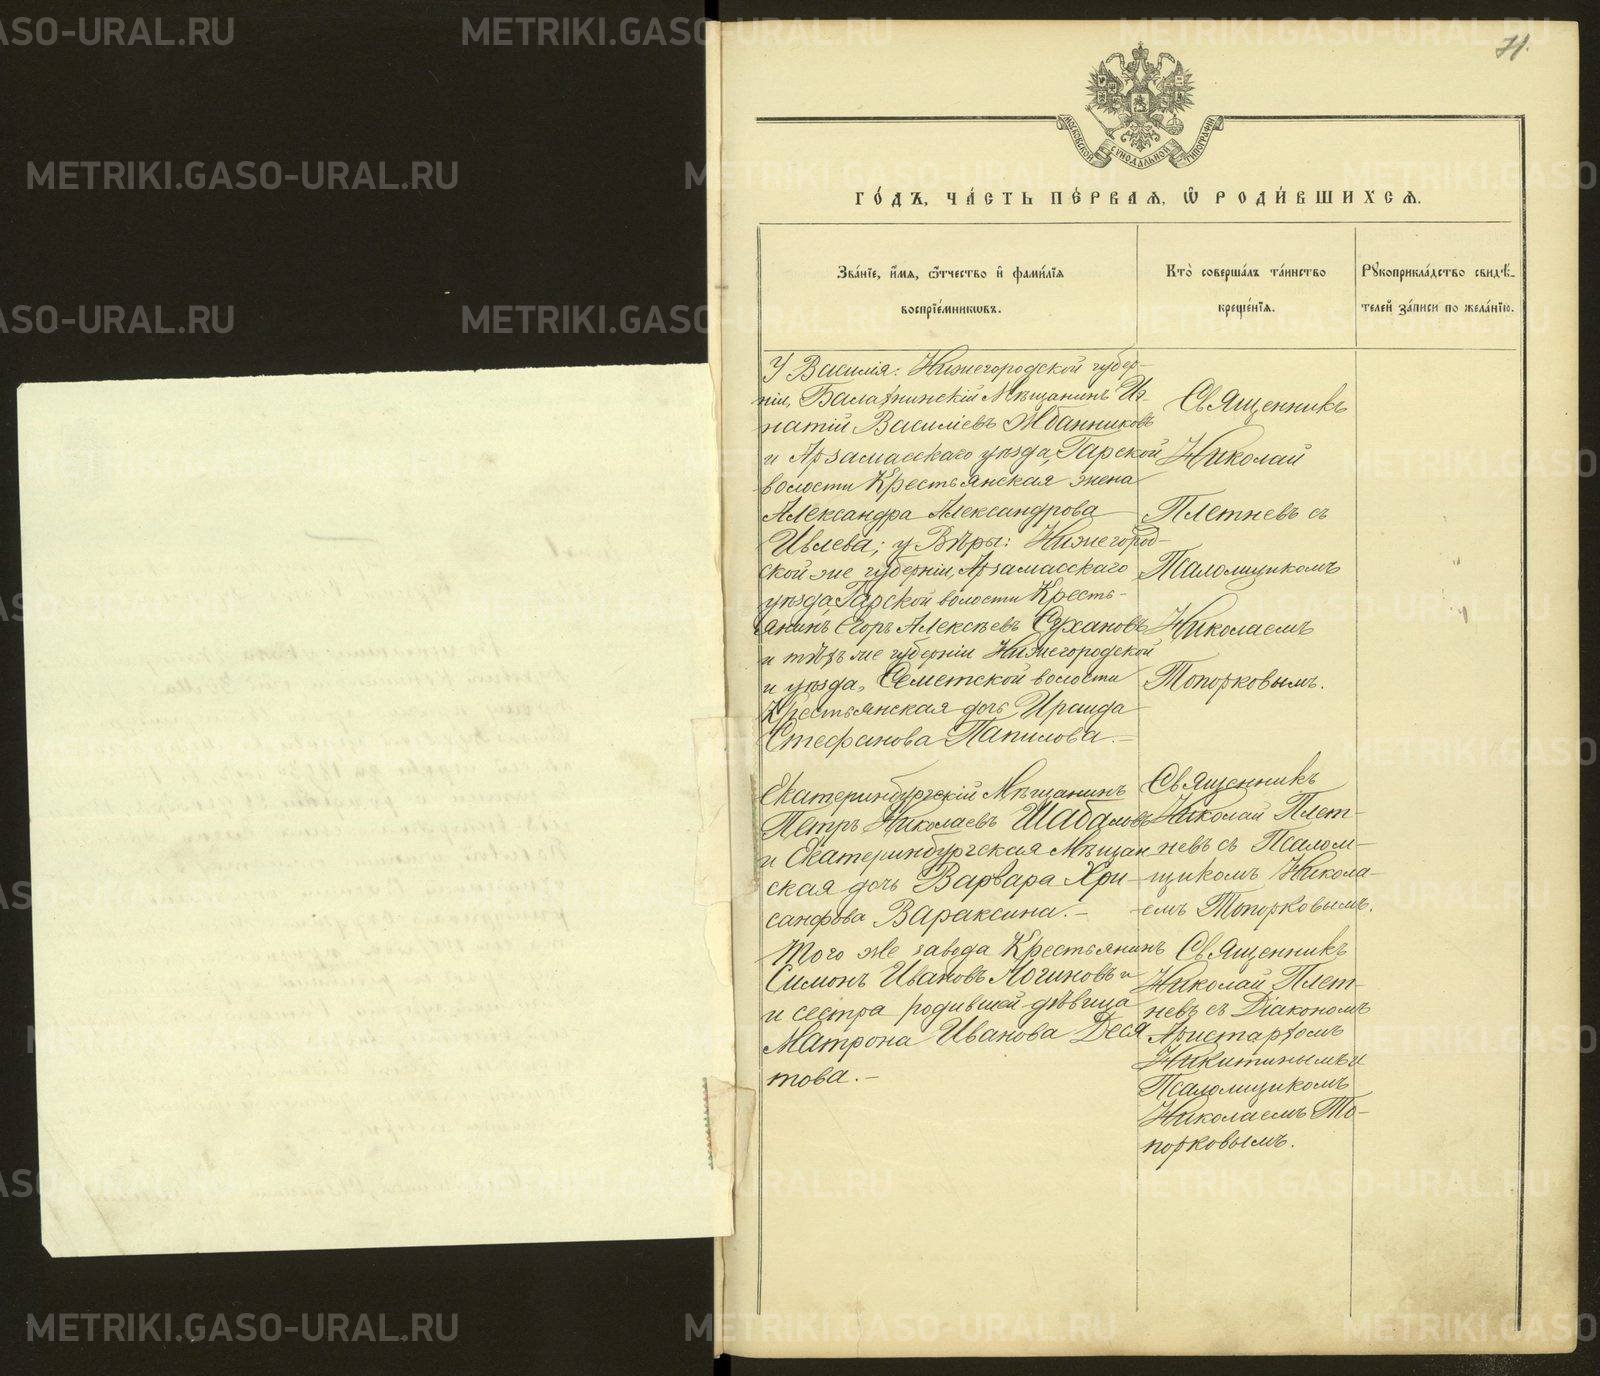 71.
МОСКОВСКОЙ СѴНОДАЛЬНОЙ ТИПОГРАФІИ
ГО́ДЪ, ЧА́СТЬ ПЕ́РВАЯ, Ѽ РОДИ́ВШИХСЯ.
Зва́нїе, и҆́мя, ѻ҆́тчество и҆ фами́лїя
воспрїе́мникѡвъ.
Кто̀ соверша́лъ та́инство
креще́нїя.
Рꙋкоприкла́дство свидѣ́-
телей за́писи по жела́нїю.
У Василія: Нижегородской губер-
ніи, Балахнинскій Мѣщанинъ Иг-
натій Василіевъ Жбанниковъ
и Арзамасскаго уѣзда, Гарской
волости Крестьянская жена
Александра Александрова
Ивлева; у Вѣры: Нижегород-
ской же губерніи, Арзамасскаго
уѣзда, Гарской волости Кресть-
янинъ Егоръ Алексѣевъ Сухановъ
и тѣхъ же губерніи Нижегородской
и уѣзда, волости
Крестьянская дочь Ираида
Стефанова Папилова.-
Священникъ
Николай
Плетневъ съ
Псаломщикомъ
Николаемъ
Топорковымъ.
Екатеринбургскій Мѣщанинъ
Петръ Николаевъ Шабаловъ
и Екатеринбургская Мѣщан
ская дочь Варвара Хри-
санфова Вараксина.-
Священникъ
Николай Плет-
невъ съ Псалом-
щикомъ Никола-
емъ Топорковымъ.
Того же завода Крестьянинъ
Симонъ Ивановъ Логиновъ и
и сестра родившей дѣвица
Матрона Иванова Деся
това.-
Священникъ
Николай Плет-
невъ съ Діакономъ
Аристархомъ
Никитинымъ и
Псаломщикомъ
Николаемъ То-
порковымъ.
METRIKI.GASO-URAL.RU